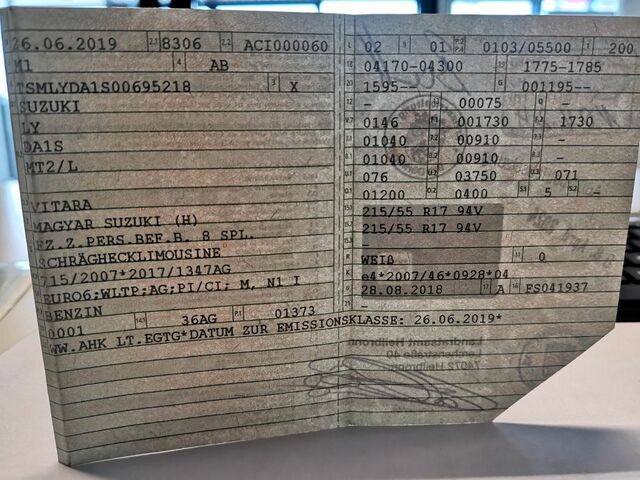 26.06.2019 8306 ACI000060
M1 AB
TSMLYDA1S00695218 X
SUZUKI
LY
DA1S
MT2/L
VITARA
MAGYAR SUZUKI (H)
FZ.Z.PERS.BEF.B. 8 SPL.
SCHRÄGHECKLIMOUSINE
715/2007*2017/1347AG
EURO6;WLTP;AG;PI/CI; M, N1 I
BENZIN
0001 36AG 01373
WW.AHK LT.EGTG*DATUM ZUR EMISSIONSKLASSE: 26.06.2019*
02 01 0103/05500 200
04170-04300 1775-1785
1595-- 001195--
- 00075 -
0146 001730 1730
01040 00910 -
01040 00910 -
076 03750 071
01200 0400 5 -
215/55 R17 94V
215/55 R17 94V
-
WEIß 0
e4*2007/46*0928*04
28.08.2018 A FS041937
-
Landratsamt Heilbronn
Lerchenstraße 40
74072 Heilbronn